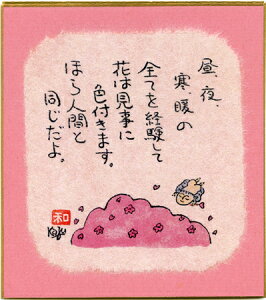 昼、夜、
寒、暖の
全てを経験して
花は見事に
色付きます。
ほら人間と
同じだよ。
和